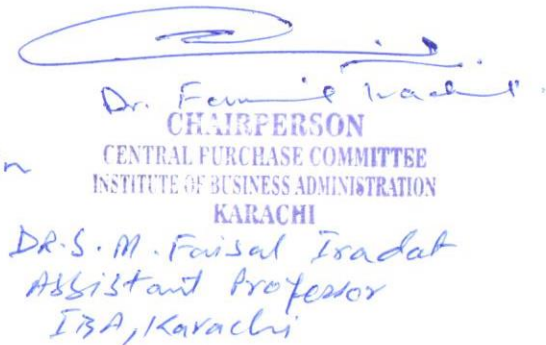 Dr.
CHAIRPERSON
CENTRAL PURCHASE COMMITTEE
n
INSTITUTE OF BUSINESS ADMINISTRATION
KARACHI
DR. S. M. Faisal Iradat
Assistant Professor
IBA, Karachi